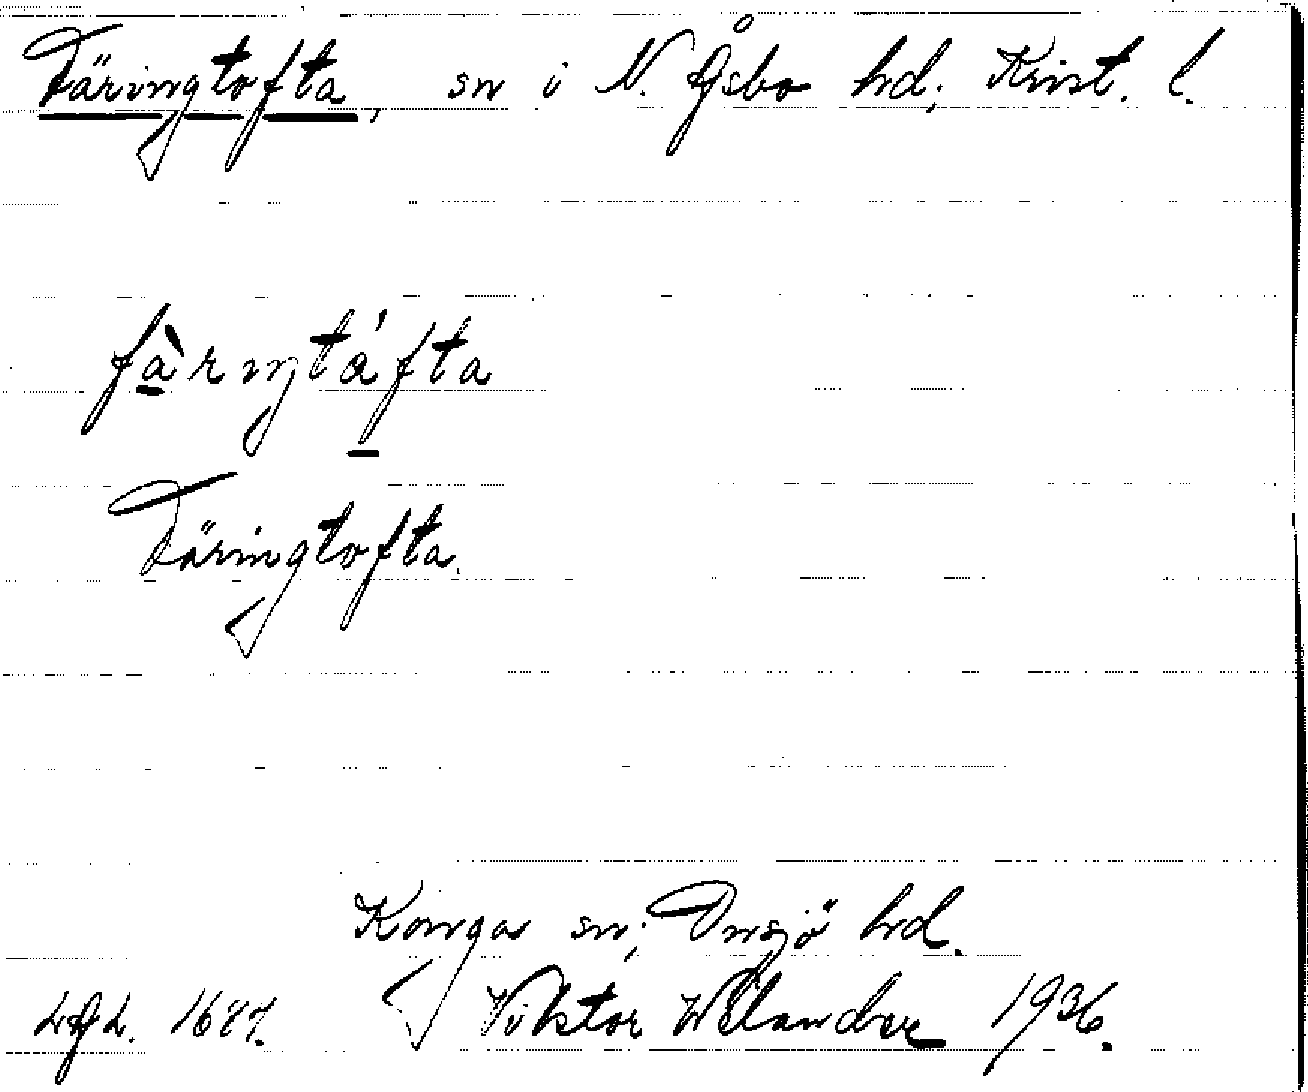 Färingtofta, sn i N. Åsbo hd, Krist. l.
fàrıŋtáfta
Färingtofta.
Konga sn, Onsjö hd.
LAL. 1687. Viktor Welander 1936.